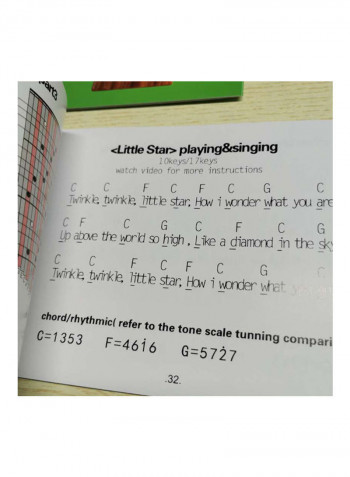 <Little Star> playing&singing
10keys/17keys
watch video for more instructions
C C F C F C G C
Twinkle, twinkle, little star, How i wonder what you are
C F C G C G C G
Up above the world so high , Like a diamond in the sk
C C F C F C G
Twinkle, twinkle, little star, How i wonder what y
chord/rhythmic( refer to the tone scale tunning compari
C=1353 F=461̇6 G=572̇7
.32.